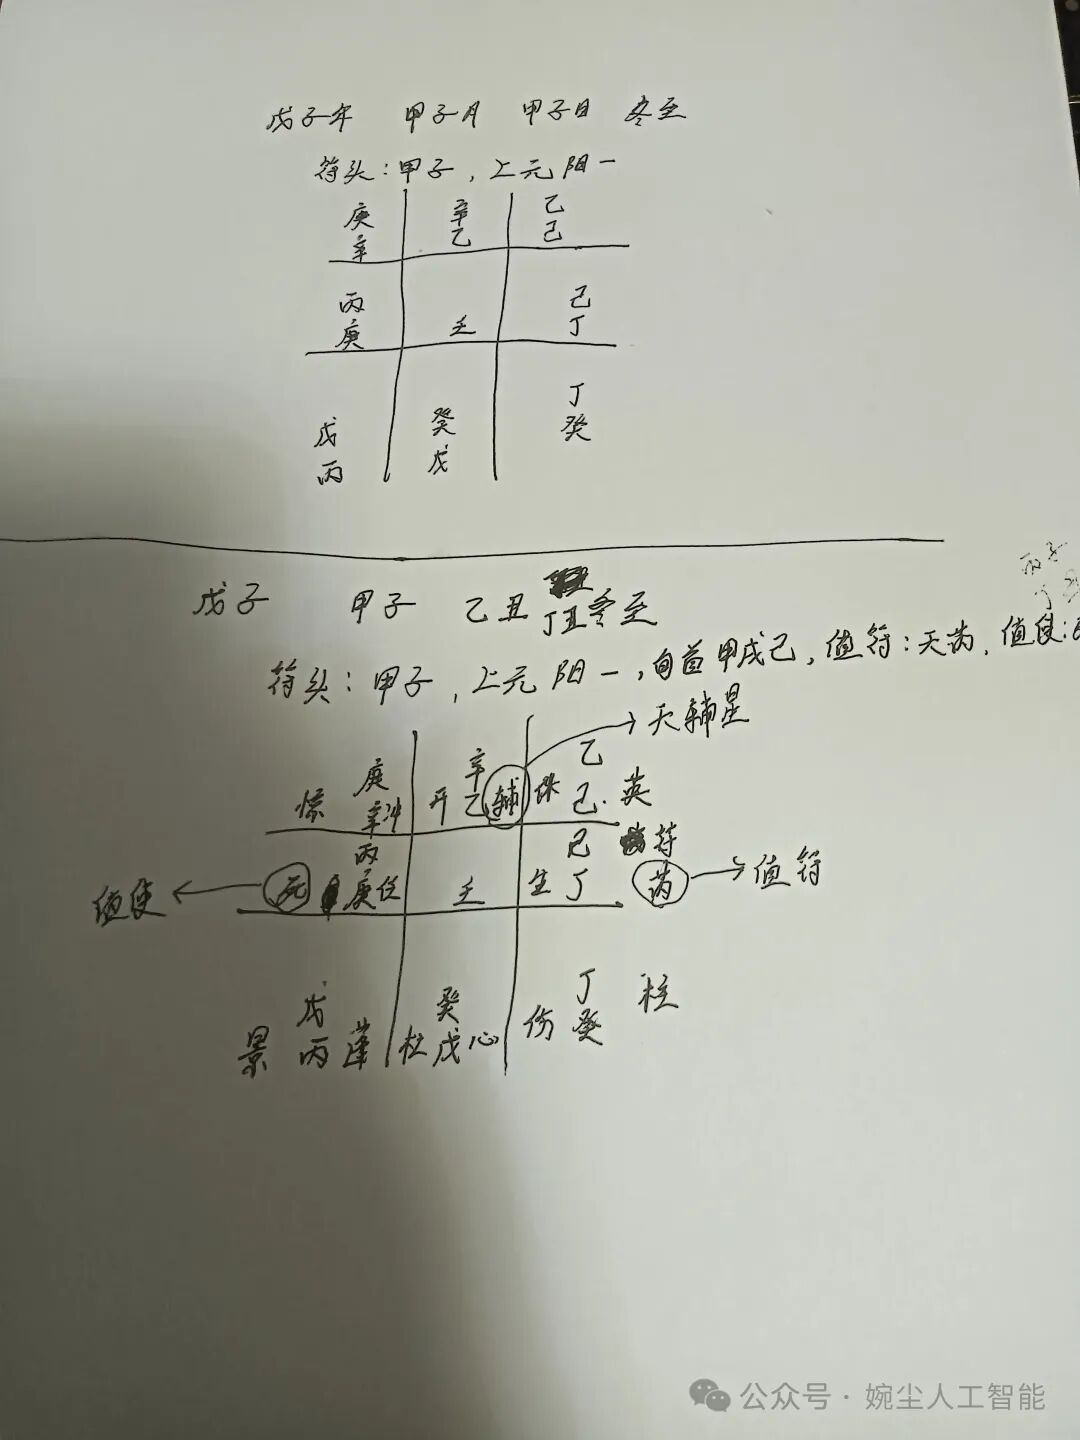 戊子年 甲子月 甲子日 冬至
符头：甲子，上元阳一
庚 辛 乙
辛 乙 己
丙 己
庚 壬 丁
丁
戊 癸 癸
丙 戊
戊子 甲子 乙丑 丁丑冬至
丙子
符头：甲子，上元阳一，旬首甲戌己，值符：天芮，值使：
天辅星
庚 辛 乙
惊 辛冲 开 乙 辅 休 己 英
丙 己 符
值使 死 庚任 壬 生 丁 芮 值符
戊 癸 丁 柱
景 丙 蓬 杜 戊心 伤 癸
公众号·婉尘人工智能